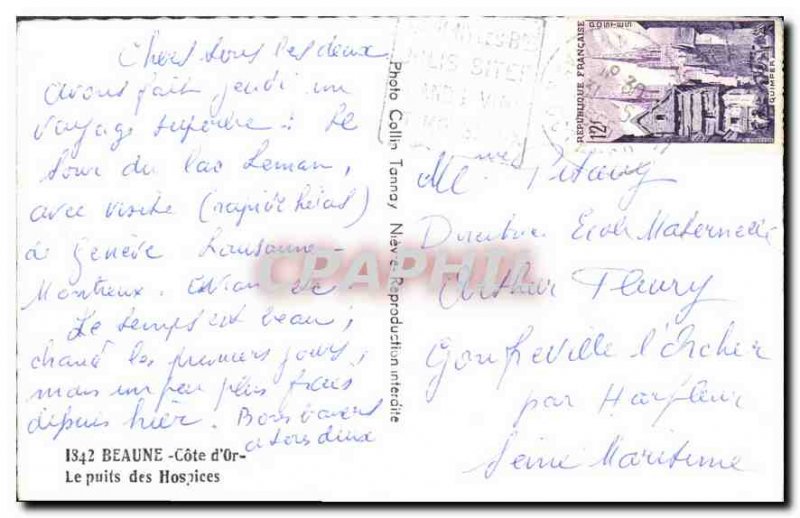 Chers tous les deux
avons fait, jeudi un
voyage superbe : Le
tour du lac Leman,
avec visite (rapide hélas)
de Genève Lausanne -
Montreux. Evian etc
Le temps est beau,
chaud les premiers jours,
mais un peu plus frais
depuis hier. Bons baisers
a tous deux
1842 BEAUNE -Côte d'Or-
Le puits des Hospices
Photo Collin Tannay Nièvre-Reproduction interdite
POSTES
REPUBLIQUE FRANÇAISE
12F
QUIMPER
SITES
Me
Directrice Ecole Maternelle
Arthur Fleury
Gonfreville l'Orcher
par Harfleur
Seine Maritime
CPAPHIL